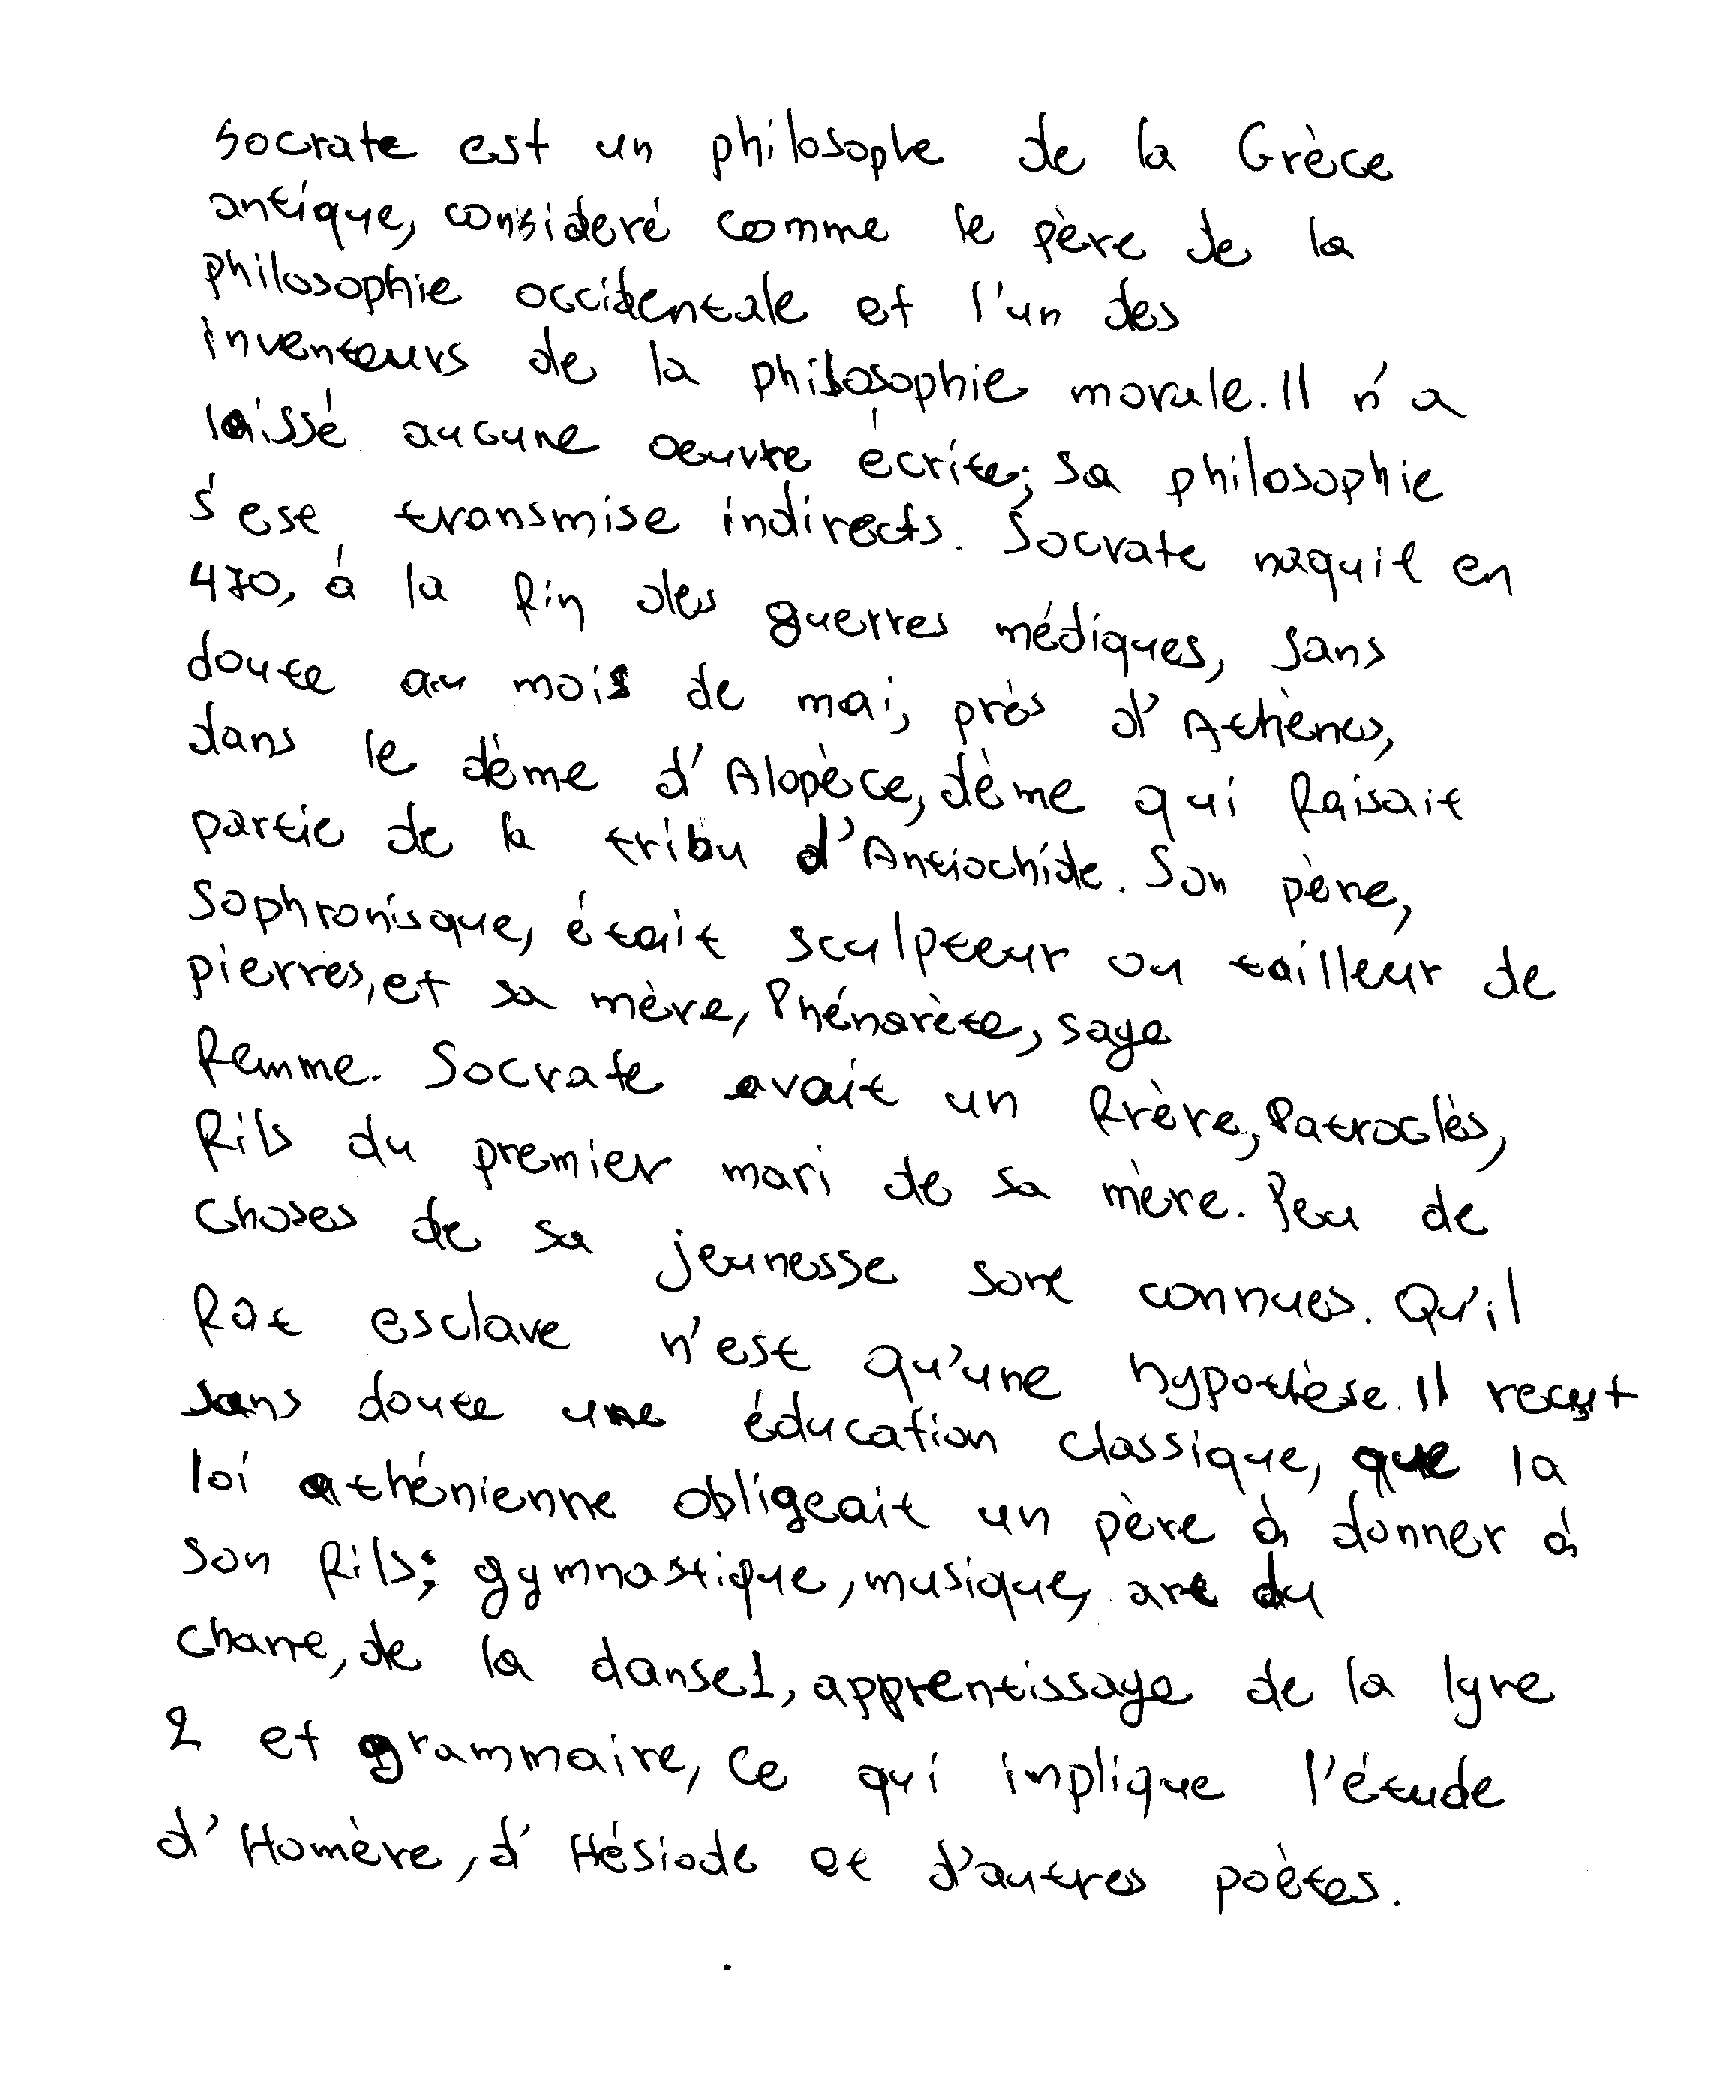 Socrate est un philosophe de la Grèce
antique, consideré comme le père de la
philosophie occidentale et l'un des
inventeurs de la philosophie morale. Il n'a
laissé aucune oeuvre écrite; sa philosophie
s'est transmise indirects. Socrate naquit en
470, à la fin des guerres médiques, sans
doute au mois de mai, près d'Athènes,
dans le dème d'Alopèce, dème qui faisait
partie de la tribu d'Antiochide. Son père,
Sophronisque, était sculpteur ou tailleur de
pierres, et sa mère, Phénarète, sage
femme. Socrate avait un frère, Patroclès,
fils du premier mari de sa mère. Peu de
choses de sa jeunesse sont connues. Qu'il
fût esclave n'est qu'une hypothèse. Il reçut
sans doute une éducation classique, que la
loi athénienne obligeait un père à donner à
son fils; gymnastique, musique, art du
chant, de la danse1, apprentissage de la lyre
2 et grammaire, ce qui implique l'étude
d'Homère, d'Hésiode et d'autres poètes.